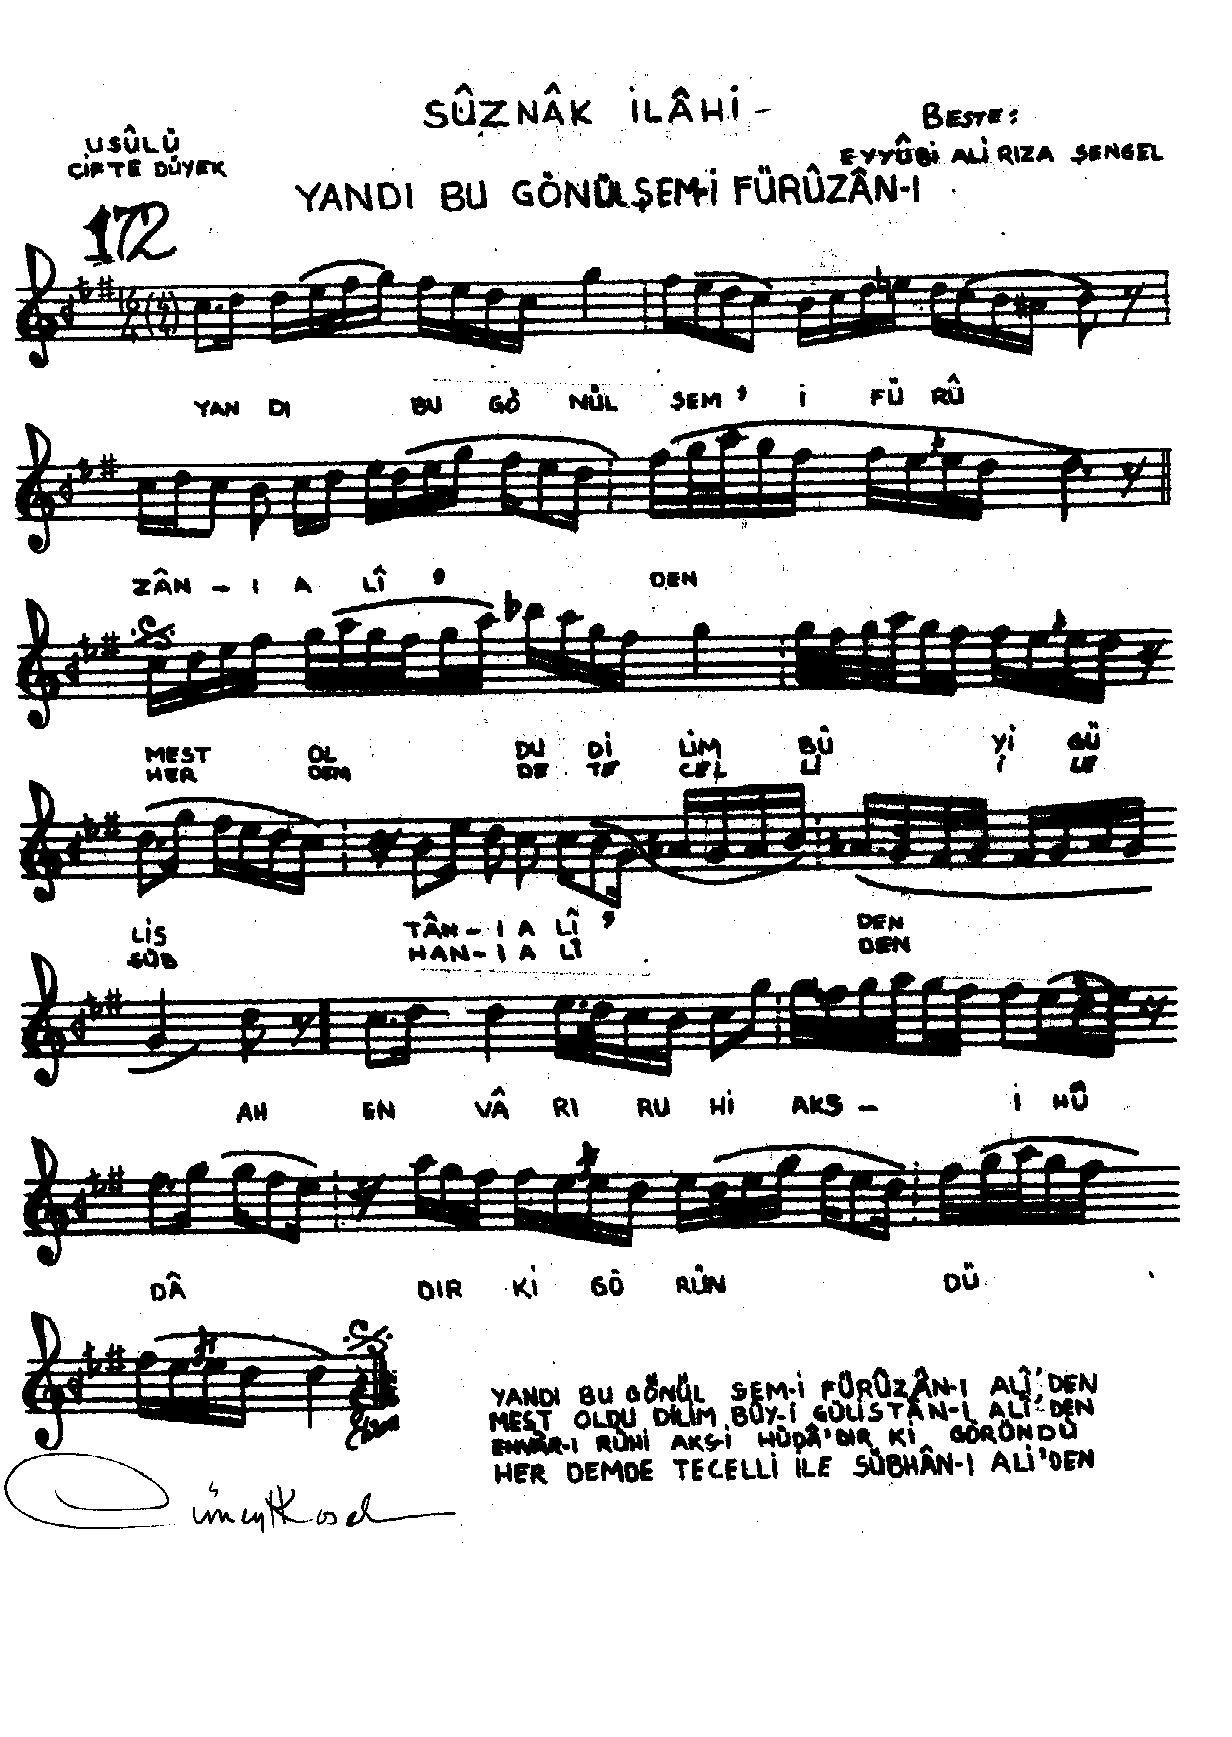 SÛZNÂK İLÂHİ -
BESTE:
USÛLÜ
ÇİFTE DÜYEK
EYYÛBİ ALİ RIZA ŞENGEL
YANDI BU GÖNÜL ŞEM-İ FÜRÛZÂN-I
172
YAN DI BU GÖ NÜL ŞEM ' İ FÜ RÛ
ZÂN - I A LÎ ' DEN
MEST OL DU Dİ LİM BÛ Yİ GÜ
HER DEM DE TE CEL Lİ İ LE
LİS TÂN - I A LÎ ' DEN
SÜB HAN - I A LÎ DEN
AH EN VÂ RI RU Hİ AKS - İ HÜ
DÂ DIR Kİ GÖ RÜN DÜ
YANDI BU GÖNÜL ŞEM-İ FÜRÛZÂN-I ALÎ'DEN
MEST OLDU DİLİM BÛY-İ GÜLİSTÂN-I ALÎ'DEN
ENVÂR-I RÛHİ AKS-İ HÜDÂ'DIR Kİ GÖRÜNDÜ
HER DEMDE TECELLİ İLE SÜBHÂN-I ALİ'DEN
Cüneyt Kosal